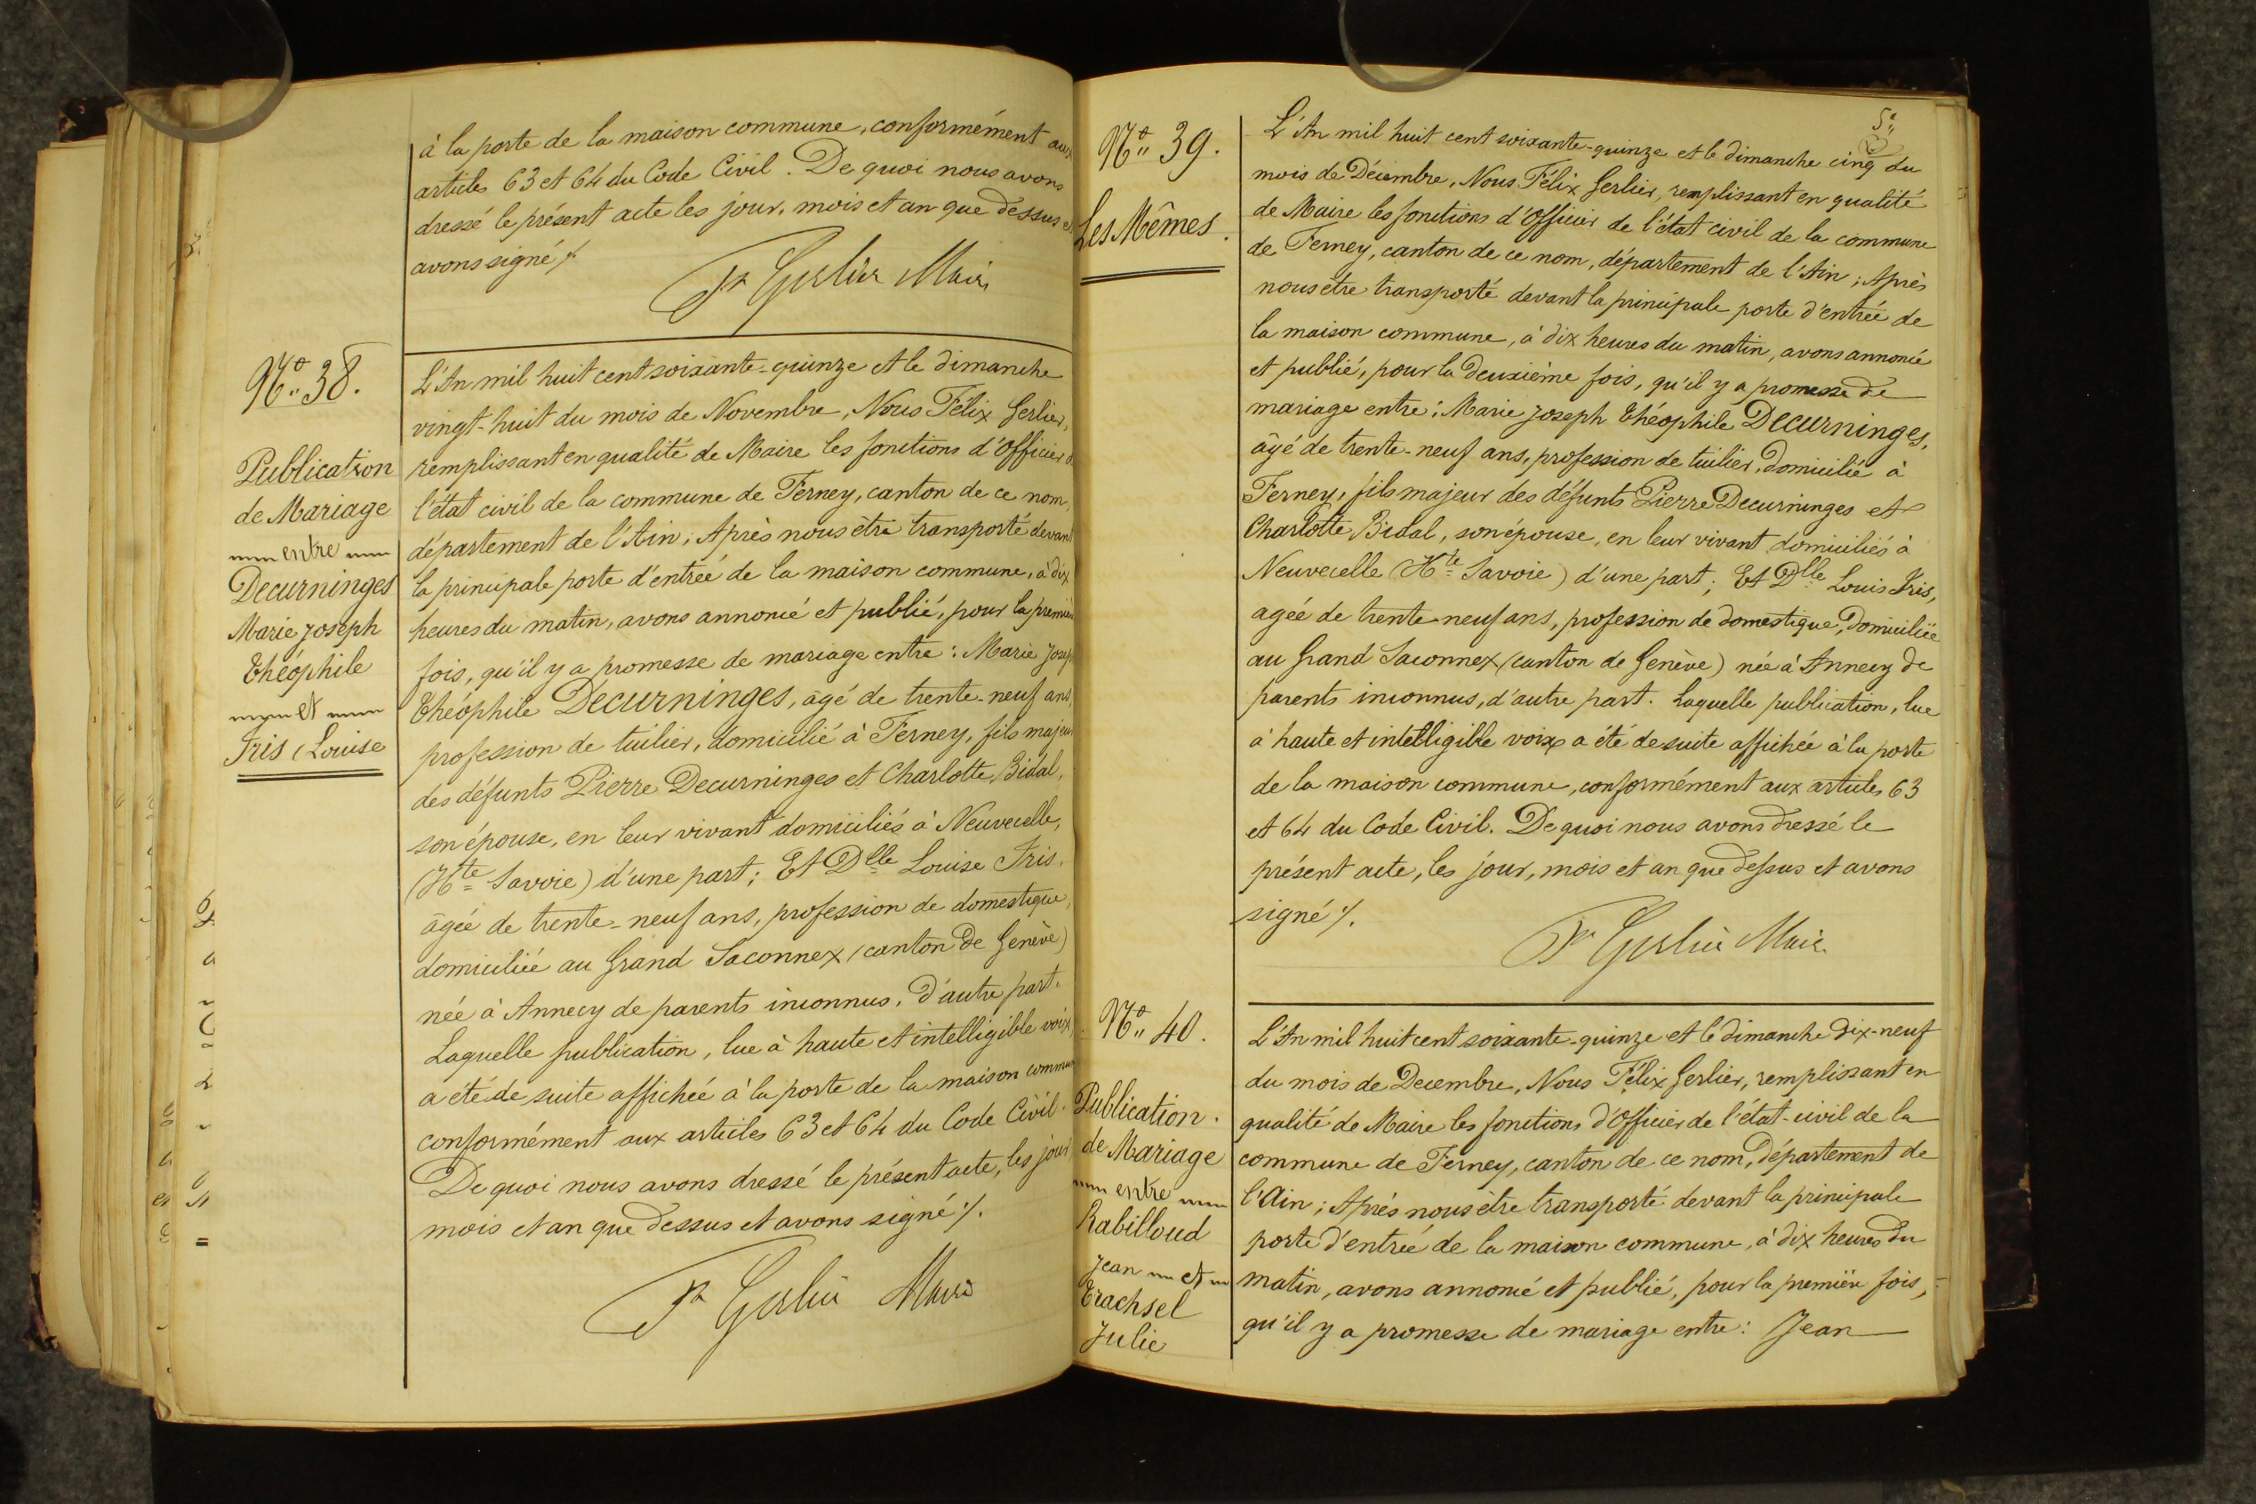 à la porte de la maison commune, conformément aux
articles 63 et 64 du Code Civil. De quoi nous avons
dressé le présent acte les jour, mois et an que dessus et
avons signé ./.
Fx Gerlier Maire
No. 38.
Publication
de Mariage
entre
Decurninges
Marie Joseph
Théophile
et
Fris Louise
L'An mil huit cent soixante-quinze et le dimanche
vingt-huit du mois de Novembre, Nous Félix Gerlier,
remplissant en qualité de Maire les fonctions d'Officier de
l'état civil de la commune de Ferney, canton de ce nom,
département de l'Ain; Après nous être transporté devant
la principale porte d'entrée de la maison commune, à dix
heures du matin, avons annoncé et publié, pour la première
fois, qu'il y a promesse de mariage entre: Marie Joseph
Théophile Decurninges, âgé de trente-neuf ans,
profession de tuilier, domicilié à Ferney, fils majeur
des défunts Pierre Decurninges et Charlotte Bidal,
son épouse, en leur vivant domiciliés à Neuvecelle,
(Hte Savoie) d'une part; Et Dlle Louise Fris,
âgée de trente-neuf ans, profession de domestique,
domiciliée au Grand Saconnex (canton de Genève)
née à Annecy de parents inconnus, d'autre part.
Laquelle publication, lue à haute et intelligible voix,
a été de suite affichée à la porte de la maison commune
conformément aux articles 63 et 64 du Code Civil.
De quoi nous avons dressé le présent acte, les jour
mois et an que dessus et avons signé ./.
Fx Gerlier Maire
No. 39.
Les Mêmes.
L'An mil huit cent soixante-quinze et le dimanche cinq du
mois de Décembre, Nous Félix Gerlier, remplissant en qualité
de Maire les fonctions d'Officier de l'état civil de la commune
de Ferney, canton de ce nom, département de l'Ain; Après
nous être transporté devant la principale porte d'entrée de
la maison commune, à dix heures du matin, avons annoncé
et publié, pour la deuxième fois, qu'il y a promesse de
mariage entre: Marie Joseph Théophile Decurninges,
âgé de trente-neuf ans, profession de tuilier, domicilié à
Ferney, fils majeur des défunts Pierre Decurninges et
Charlotte Bidal, son épouse, en leur vivant domiciliés à
Neuvecelle (Hte Savoie) d'une part; Et Dlle Louis Fris,
agée de trente neuf ans, profession de domestique, domiciliée
au Grand Saconnex (canton de Genève) née à Annecy de
parents inconnus, d'autre part. Laquelle publication, lue
à haute et intelligible voix a été de suite affichée à la porte
de la maison commune, conformément aux articles 63
et 64 du Code Civil. De quoi nous avons dressé le
présent acte, les jour, mois et an que dessus et avons
signé ./.
Fx Gerlier Maire
No. 40.
Publication.
de Mariage
entre
Rabilloud
Jean et
Trachsel
Julie
L'An mil huit cent soixante-quinze et le dimanche dix-neuf
du mois de Decembre, Nous Félix Gerlier, remplissant en
qualité de Maire les fonctions d'Officier de l'état-civil de la
commune de Ferney, canton de ce nom, département de
l'Ain; Après nous être transporté devant la principale
porte d'entrée de la maison commune, à dix heures du
matin, avons annoncé et publié, pour la première fois,
qu'il y a promesse de mariage entre: Jean